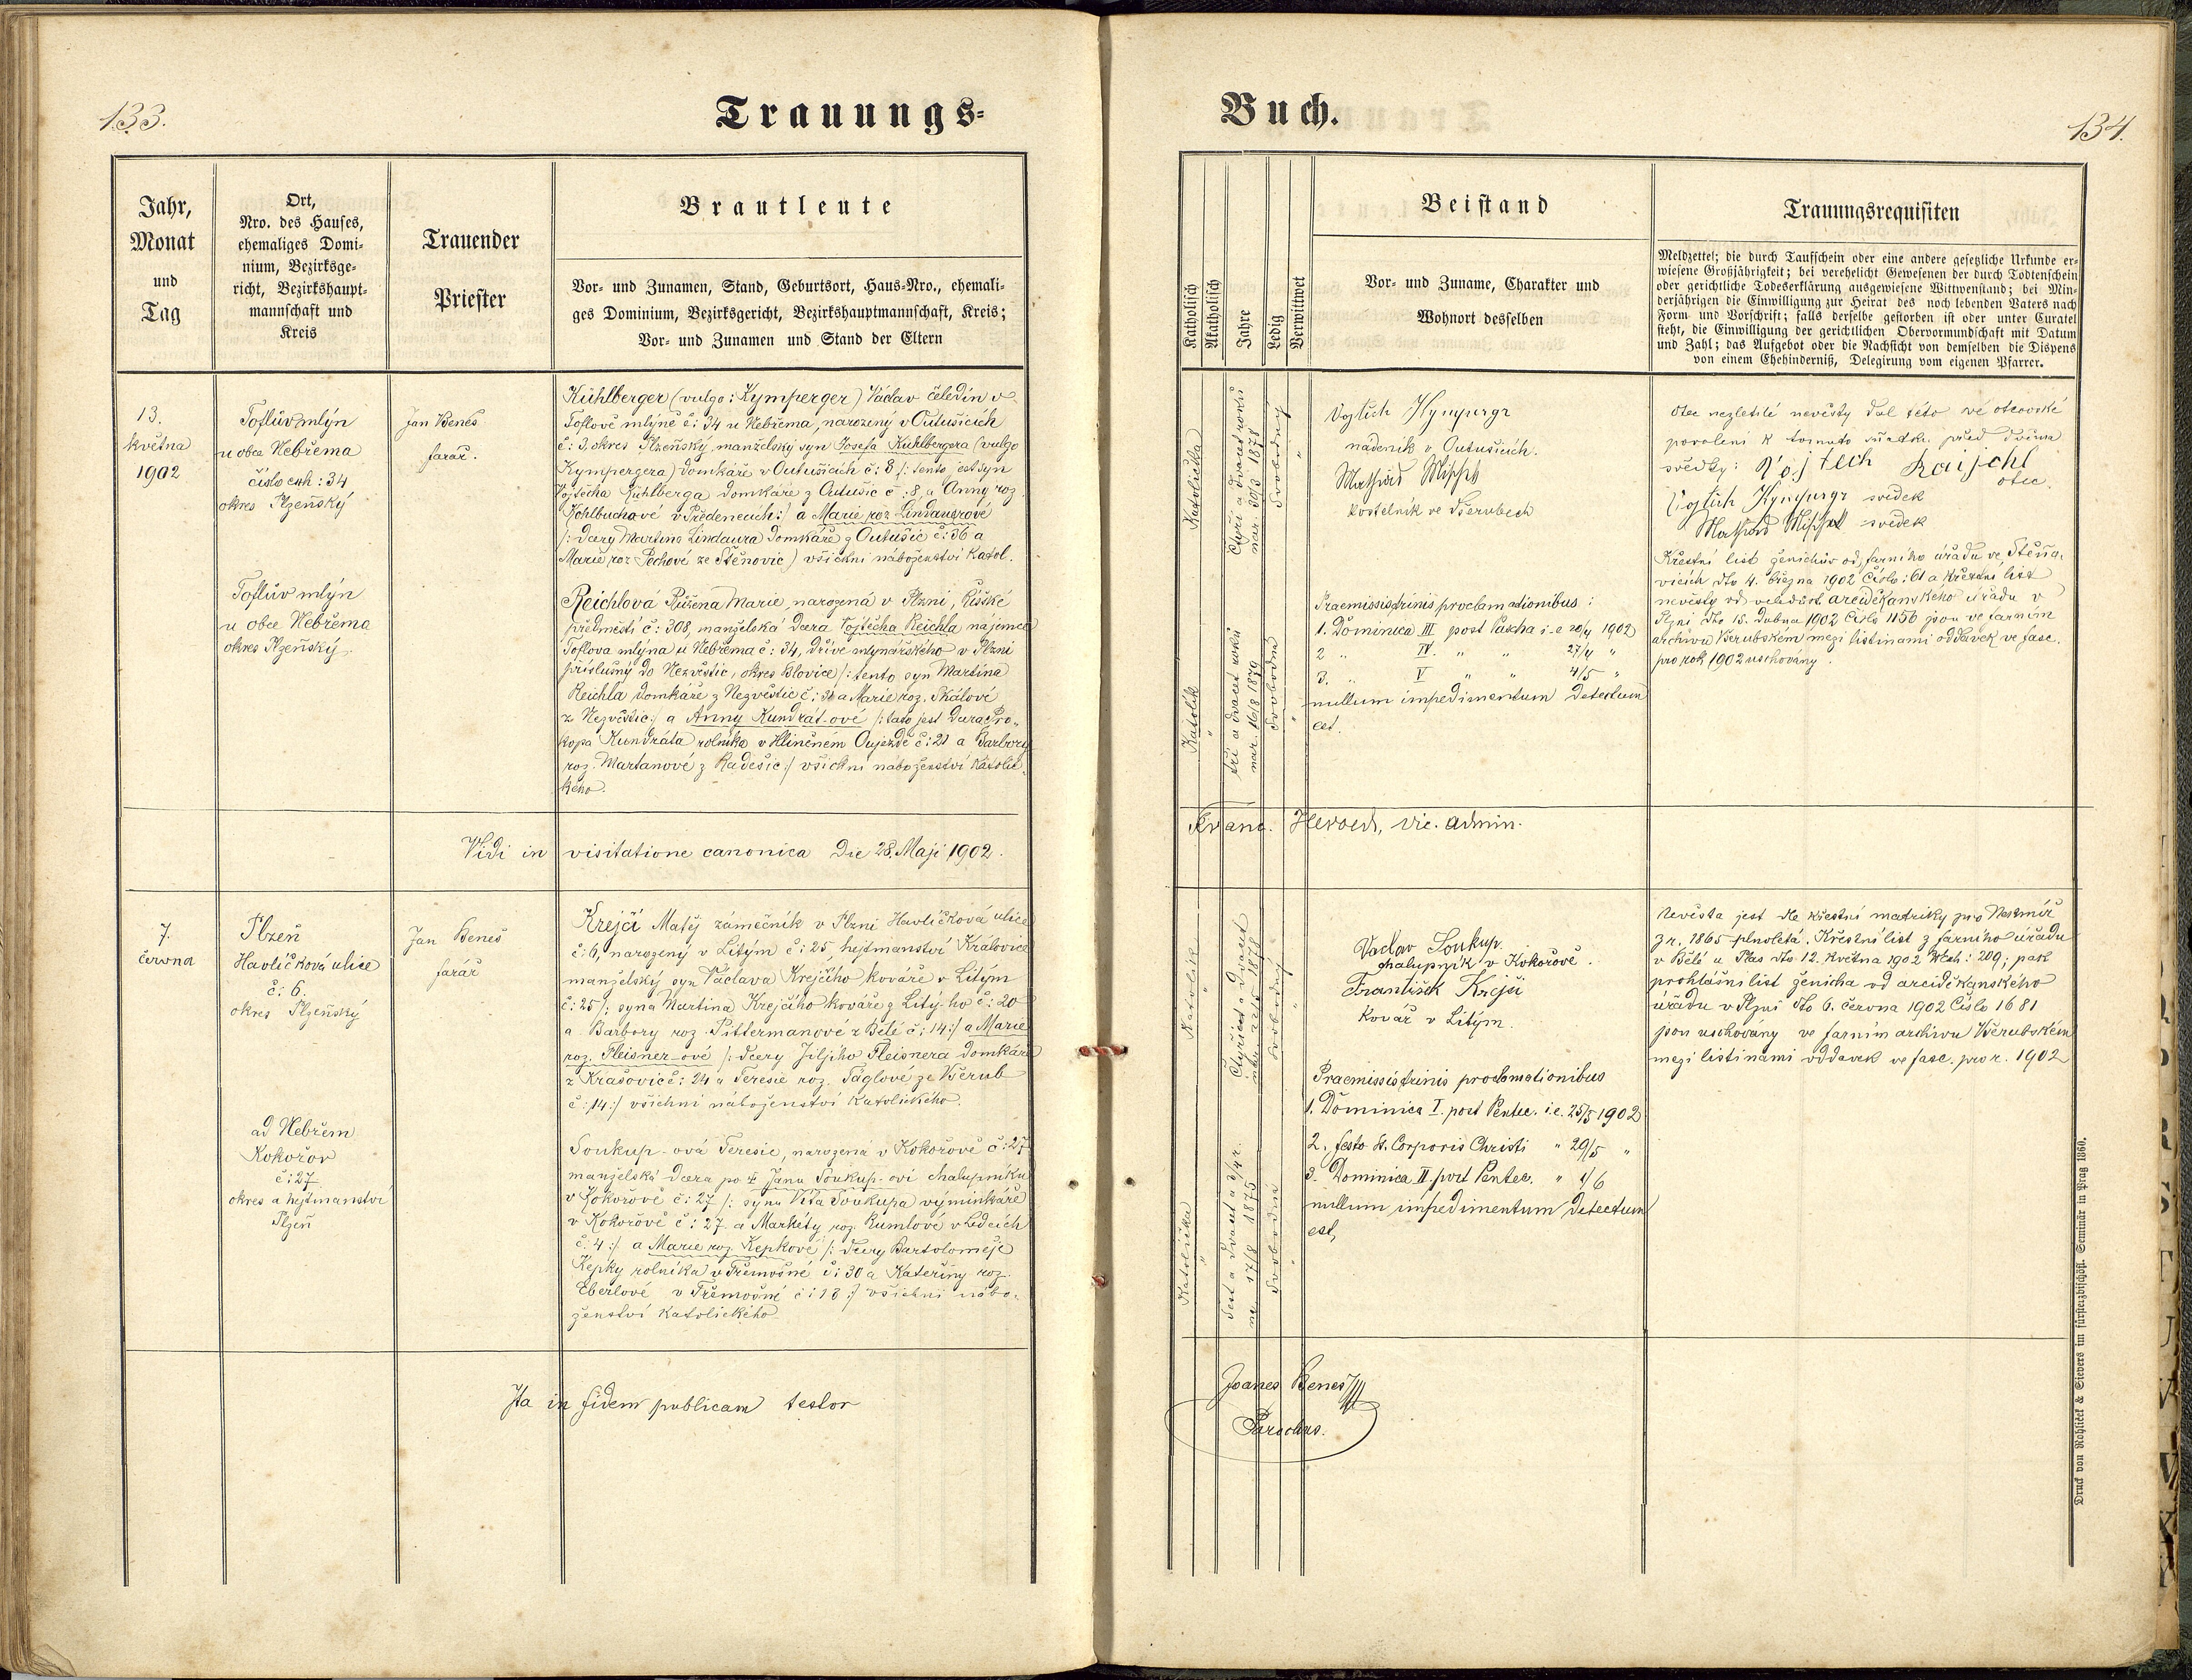 133.
Trauungs-
Jahr,
Monat
und
Tag
Ort,
Nro. des Hauses,
ehemaliges Domi-
nium, Bezirksge-
richt, Bezirkshaupt-
mannschaft und
Kreis
Trauender
Priester
Brautleute
Vor- und Zunamen, Stand, Geburtsort, Haus-Nro., ehemali-
ges Dominium, Bezirksgericht, Bezirkshauptmannschaft, Kreis;
Vor- und Zunamen und Stand der Eltern
13.
května
1902
Toflův mlýn
u obce Nebřema
číslo 34
okres Plzeňský
Jan Beneš
farář.
Kühlberger (vulgo: Kymperger) Václav čeledín v
Toflově mlýně č: 34 u Nebřema, narozený v Outušicích
č: 3, okres Plzeňský, manželský syn Josefa Kühlbergera (vulgo
Kympergera) domkáře v Outušicích č: 8 /: tento jest syn
Vojtěcha Kühlberga domkáře z Outušic č: 8, a Anny roz.
v :/ a Marie roz. Lindauerové
/: dcery Martina Lindaura domkáře z Outušic č: 36 a
Marie roz. Pechové ze Štěnovic) všichni náboženství katol.
Toflův mlýn
u obce Nebřema
okres Plzeňský.
Reichlová Růžena Marie, narozená v Plzni, Říšské
předměstí č: 308, manželská dcera Vojtěcha Reichla najemce
Toflova mlýna u Nebřema č: 34, dříve mlynářského v Plzni
příslušný do Nezvěstic, okres Blovice /: tento syn Martina
Reichla domkáře z Nezvěstic č: 31 a Marie roz. Skálové
z Nezvěstic :/ a Anny Kundrát-ové /: tato jest dcera Pro-
kopa Kundráta rolníka v Hliněném Oujezdě č: 21 a Barbory
roz. Martanové z Radešic :/ všichni náboženství katolic-
kého.
Vidi in visitatione canonica Die 28. Maji 1902.
7.
června
Plzeň
Havlíčková ulice
č: 6.
okres Plzeňský
Jan Beneš
farář
Krejčí Matěj zámečník v Plzni Havlíčková ulice
č: 6, narozený v Litým č: 25, hejtmanství Královice
manželský syn Václava Krejčího kováře v Litým
č: 25 /: syna Martina Krejčího kováře z Litýho č: 20
a Barbory roz. Pittermanové z Bělé č: 14 :/ a Marie
roz. Fleisner-ové /: dcery Jiljího Fleisnera domkáře
z Krašovic č: 24 a Teresie roz. Táglové ze Všerub
č: 14 :/ všichni náboženství katolického.
ad Nebřem
Kokořov
č: 27
okres a hejtmanství
Plzeň
Soukup-ová Teresie, narozená v Kokořově č: 27
manželská dcera po † Janu Soukup-ovi chalupníku
v Kokořově č: 27 /: syna Víta Soukupa výminkáře
v Kokořově č: 27 a Markéty roz. Rumlové v Ledcích
č: 4 :/ a Marie roz. Kepkové /: dcery Bartoloměje
Kepky rolníka v Třemošné č: 30 a Kateřiny roz.
Eberlové v Třemošné č: 18 :/ všichni nábo-
ženství katolického
Ita in fidem publicam testor
Buch.
134.
Katholisch
Akatholisch
Jahre
Ledig
Verwittwet
Beistand
Vor- und Zuname, Charakter und
Wohnort desselben
Trauungsrequisiten
Meldzettel; die durch Taufschein oder eine andere gesetzliche Urkunde er-
wiesene Großjährigkeit; bei verehelicht Gewesenen der durch Todtenschein
oder gerichtliche Todeserklärung ausgewiesene Wittwenstand; bei Min-
derjährigen die Einwilligung zur Heirat des noch lebenden Vaters nach
Form und Vorschrift; falls derselbe gestorben ist oder unter Curatel
steht, die Einwilligung der gerichtlichen Obervormundschaft mit Datum
und Zahl; das Aufgebot oder die Nachsicht von demselben die Dispens
von einem Ehehinderniß, Delegirung vom eigenen Pfarrer.
Katolička
Čtyři a dvacet roků
nar. 30/3 1878
Svobodný
Vojtěch Kympergr
nádeník v Outušicích.
kostelník ve Všerubech
Praemissis trinis proclamationibus:
1. Dominica III post Pascha i.e 20/4 1902
2 " IV. " " 27/4 "
3. " V " " 4/5 "
nullum impedimentum detectum
est.
Katolík
tři a dvacet roků
nar. 16/8 1879
Svobodná
Otec nezletilé nevěsty dal této své otcovské
povolení k tomuto sňatku před dvěma
svědky: Vojtech Raijchl
otec.
Vojtěch Kympergr svědek
svědek
Křestní list ženichův od farního úřadu ve Štěno-
vicích dto 4. března 1902 Číslo: 61 a křestní list
nevěsty od veledůst. arciděkanského úřadu v
Plzni dto 15. dubna 1902 Číslo 1156 jsou ve farním
archivu Všerubském mezi listinami oddavek ve fasc.
pro rok 1902 uschovány.
Franc. Heroed, vic. admin.
Katolík
Čtyřicet a dvacet
Svobodný
Vaclav Soukup.
chalupník v Kokořově.
František Krejči
Kovař v Litým.
Praemissis trinis proclamationibus
1. Dominica I. post Pentec. i.e. 25/5 1902
2. festo S. Corporis Christi " 29/5 "
3. Dominica II. post Pentec. " 1/6
nullum impedimentum detectum
est,
Katolička
Šest a dvacet a 3/4 r.
nar. 17/8 1875
Svobodná
Nevěsta jest dle křestní matriky pro Nekmíř
z r. 1865 plnoletá. Křestní list z farního úřadu
v Bělé u Plas dto 12. května 1902 : 209; pak
prohlášní list ženicha od arciděkanského
úřadu v Plzni dto 6. června 1902 Číslo 1681
jsou uschovány ve farním archivu Všerubském
mezi listinami oddavek ve fasc. pro r. 1902
Joanes Beneš
Parochus.
Druck von Rohliček & Sievers im fürsterzbischöfl. Seminär in Prag 1860.